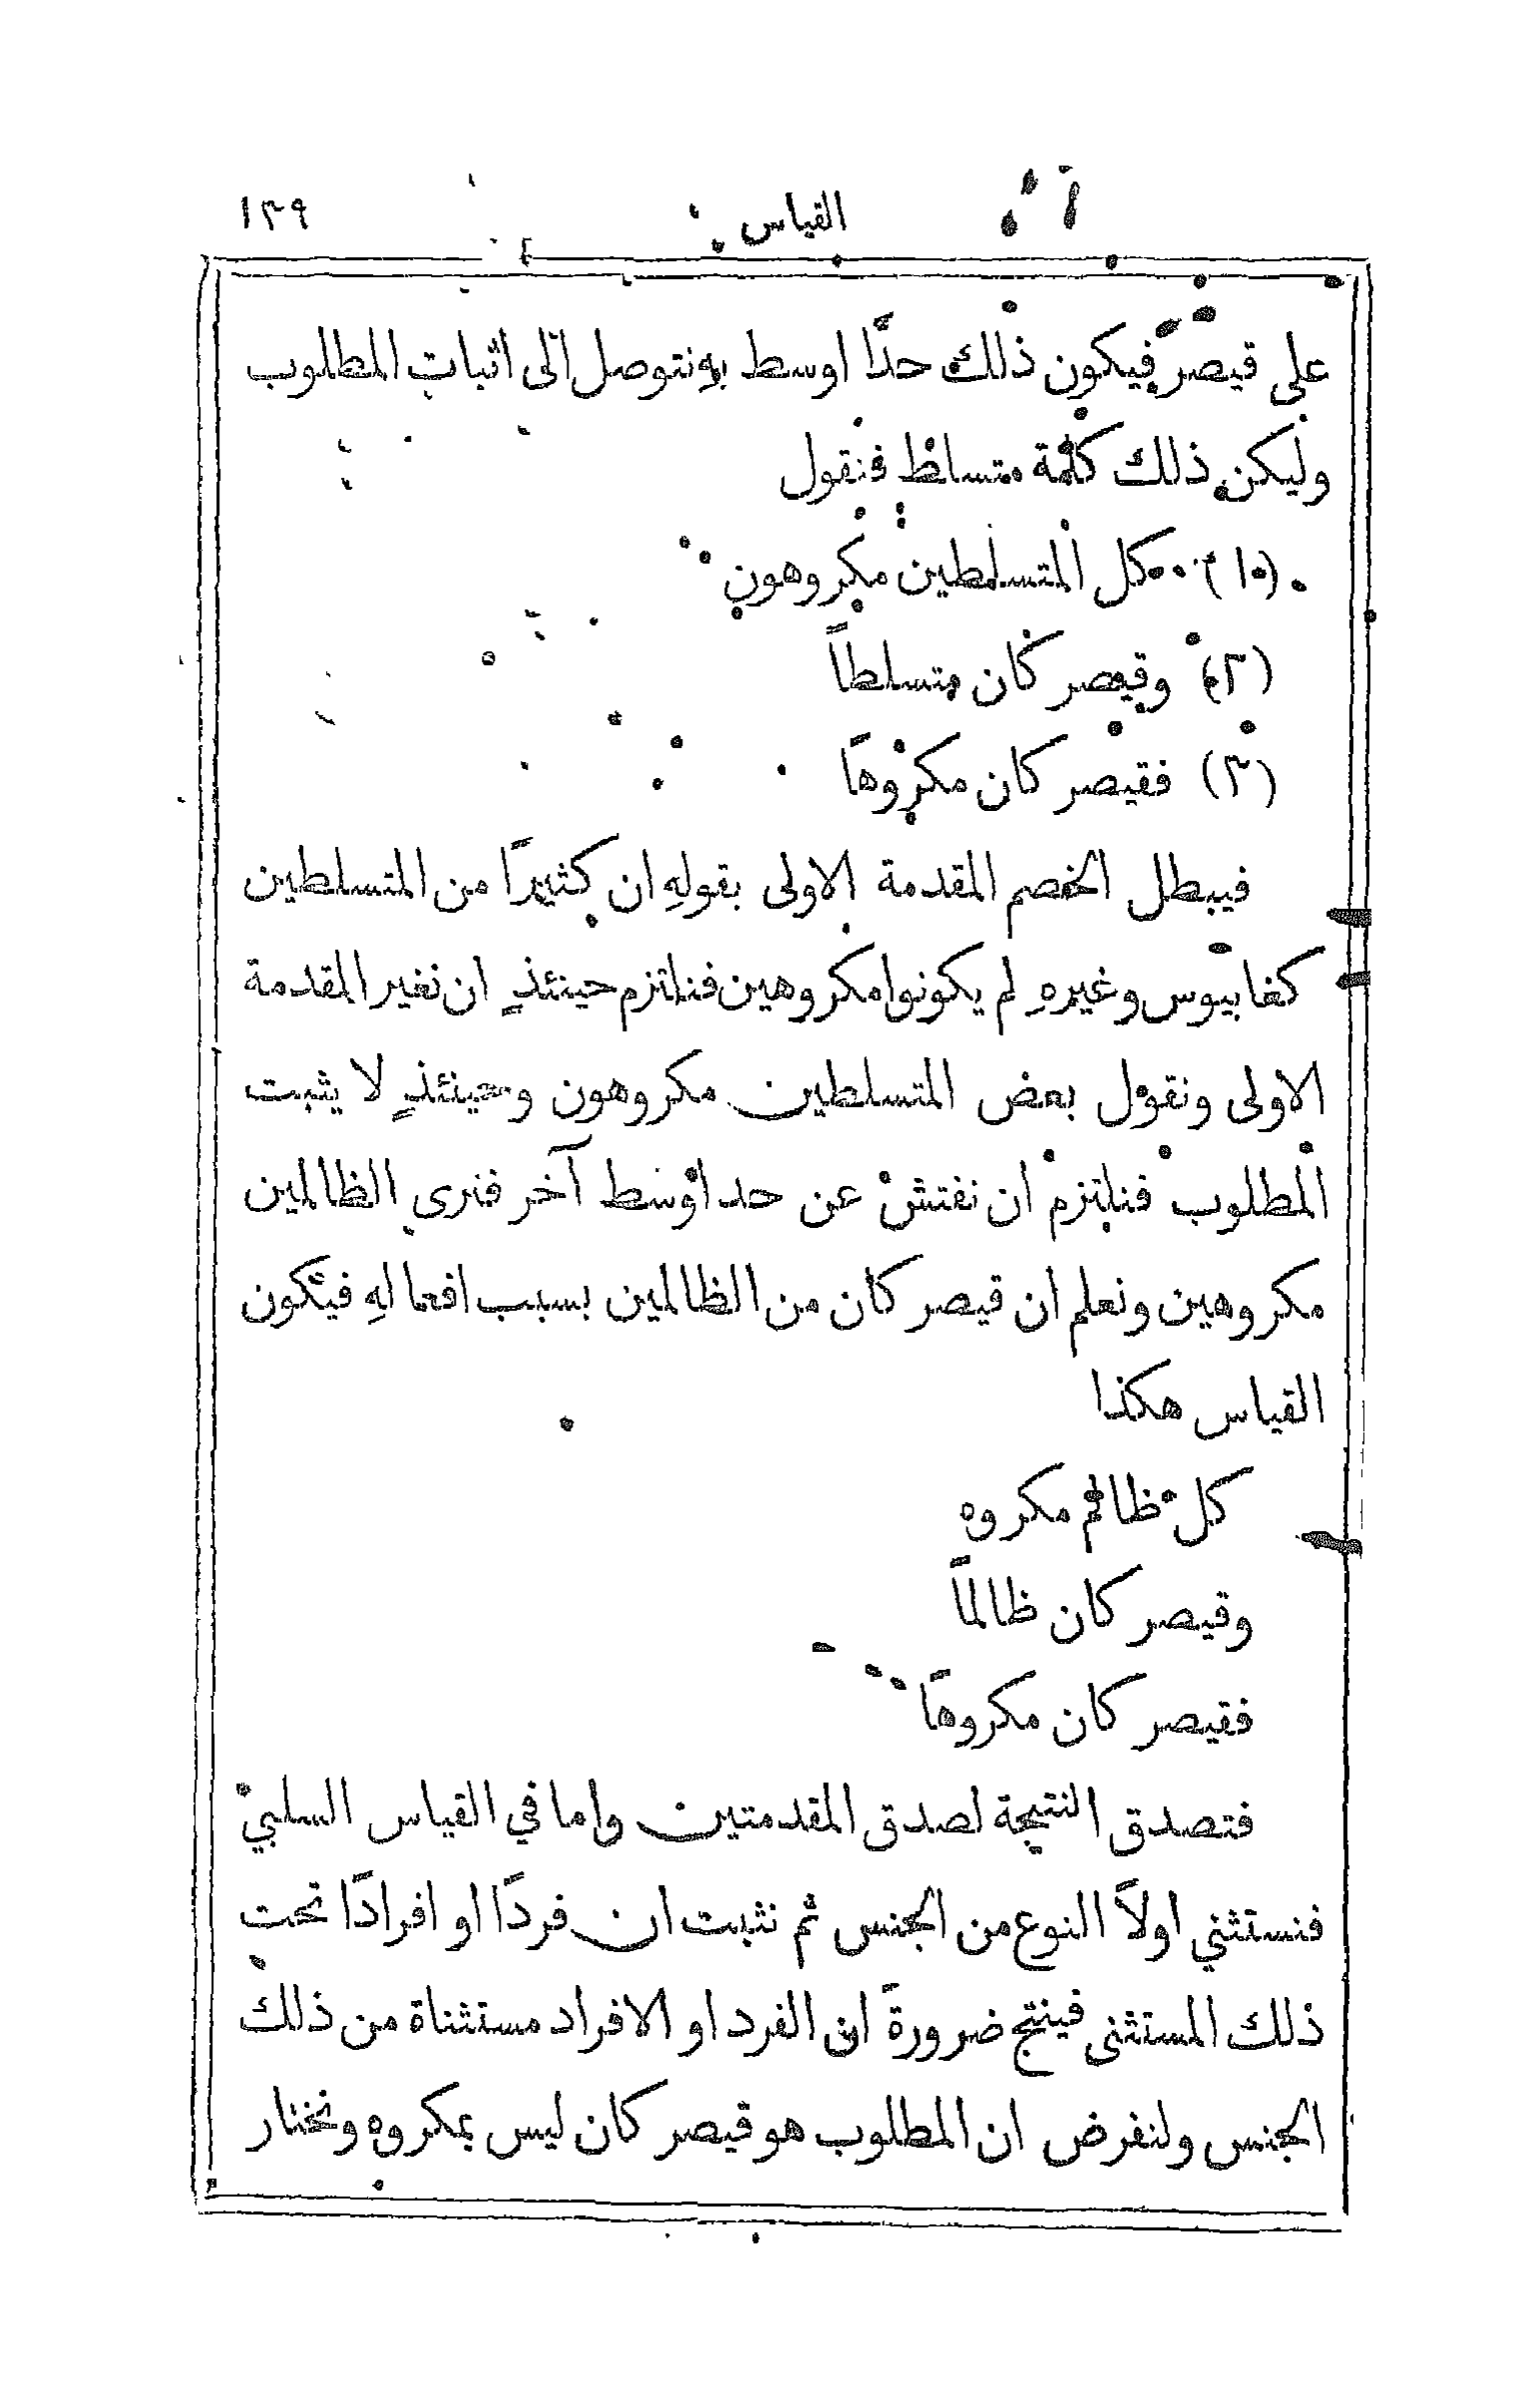 القياس ١٣٩
على قيصر فيكون ذلك حدًّا اوسط به نتوصل الى اثبات المطلوب
وليكن ذلك كلمة متسلط فنقول
(١) كل المتسلطين مكروهون
(٢) وقيصر كان متسلطاً
(٣) فقيصر كان مكروهًا
فيبطل الخصم المقدمة الاولى بقولهِ ان كثيرًا من المتسلطين
كغابيوس وغيرهِ لم يكونوا مكروهين فنلتزم حينئذٍ ان نغير المقدمة
الاولى ونقول بعض المتسلطين مكروهون وحينئذٍ لا يثبت
المطلوب فنلتزم ان نفتش عن حد اوسط آخر فنرى الظالمين
مكروهين ونعلم ان قيصر كان من الظالمين بسبب افعالهِ فيكون
القياس هكذا
كل ظالم مكروه
وقيصر كان ظالمًا
فقيصر كان مكروهًا
فتصدق النتيجة لصدق المقدمتين واما في القياس السلبي
فنستثني اولاً النوع من الجنس ثم نثبت ان فردًا او افرادًا تحت
ذلك المستثنى فينتج ضرورةً ان الفرد او الافراد مستثناة من ذلك
الجنس ولنفرض ان المطلوب هو قيصر كان ليس بمكروه ونختار